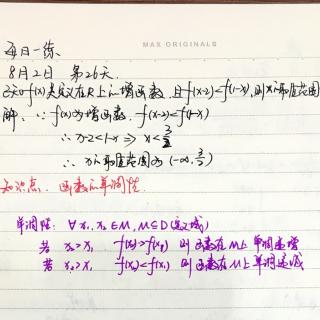 MAX ORIGINALS
每日一练
8月2日 第26天.
已知f(x)是定义在R上的增函数,且f(x-2)<f(1-x),则x的取值范围
解: ∵f(x)为增函数. f(x-2)<f(1-x)
∴x-2<1-x ⇒ x<3/2
∴x的取值范围为(-∞,3/2)
知识点: 函数的单调性.
单调性: ∀x₁,x₂∈M, M⊆D(定义域)
若 x₂>x₁ f(x₂)>f(x₁) 则函数在M上单调递增
若 x₂>x₁ f(x₂)<f(x₁) 则函数在M上单调递减